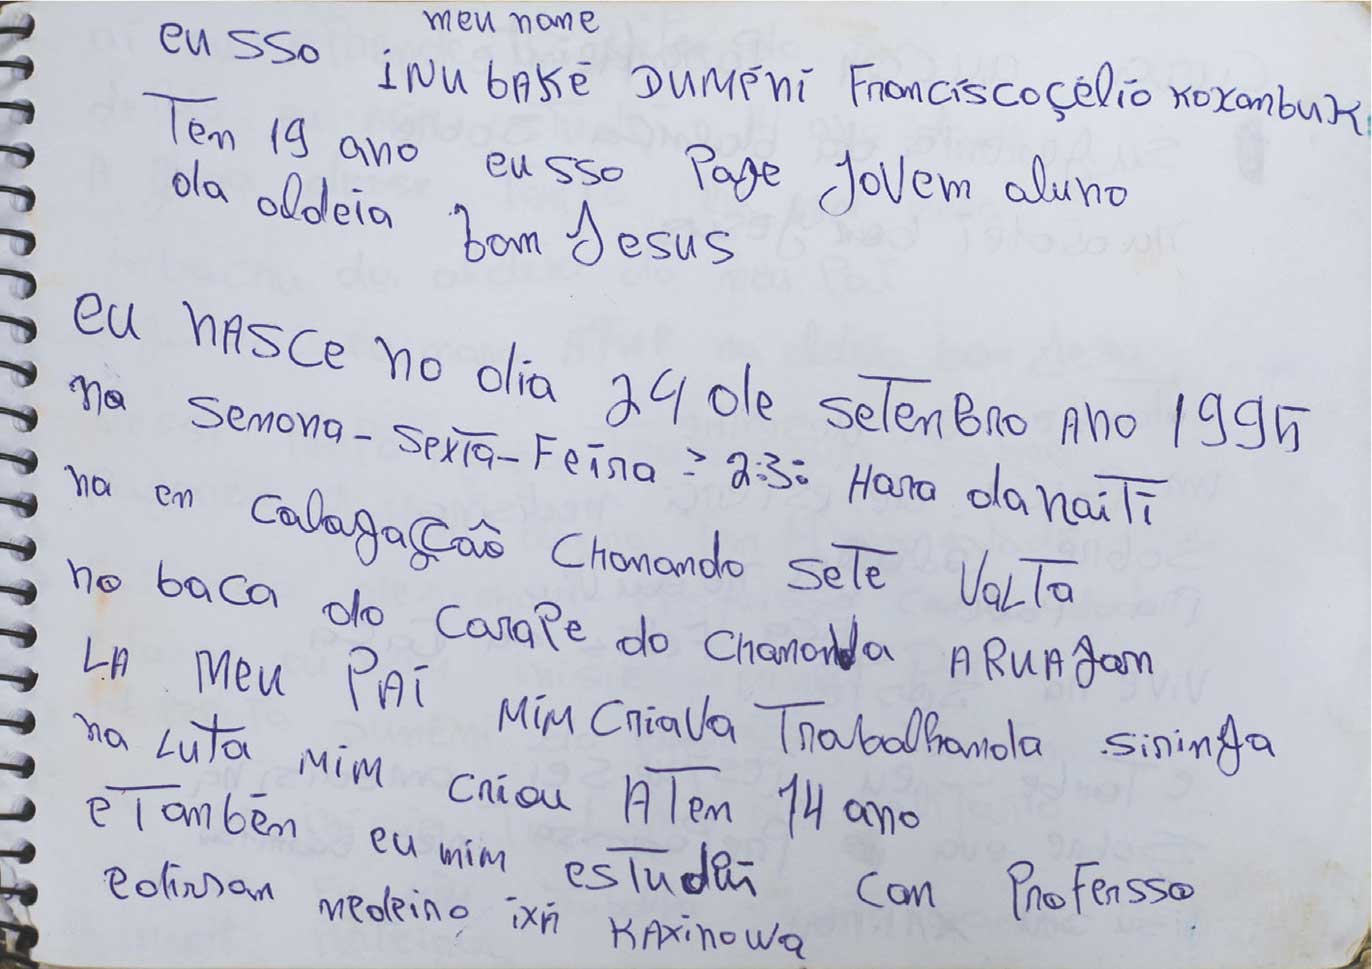 meu nome
eu sso INUBAKĒ DUMĒNI Franciscoçélio Koxambuk
Ten 19 ano eu sso Page Jovem aluno
da aldeia bom Jesus
eu NASCE no dia 24 de seTenBro Ano 1995
na semana - sexTa-Feira 2:3: Hara da naiTi
na en Calagação Chamando seTe ValTa
no baca do CaraPe do Chamanda ARUAJam
LA Meu PAi MiM Criava Trabalhanda siringa
na LuTa MiM Criou ATen 14 ano
e Tambēn eu mim esTudei con ProFersso
edirsan medeino ixã KAxinawa